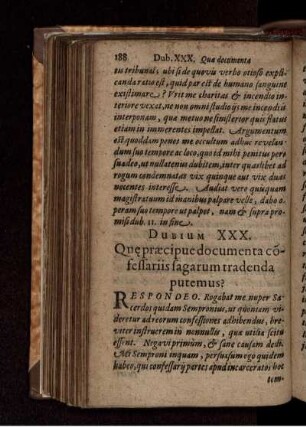 188 Dub. XXX. Quæ documenta
tu tribunal, ubi si de quovis verbo otioso expli-
canda ratio est, quid par est de humano sanguine
existimare? Urit me charitas & incendio in-
teriore vexat, ne non omni studio ijs me incendiis
interponam, quæ metuo ne sinisterior quis flatus
etiam in immerentes impellat. Argumentum
est quoddam penes me occultum adhuc revelan-
dum suo tempore ac loco, quo id mihi penitus per-
suadeo, ut nullatenus dubitem, inter quasibet ad
rogum condemnatas vix quinque aut vix duas
nocentes interesse. Audiat vero quisquam
magistratuum id manibus palpare velle, dabo o-
peram suo tempore ut palpet, nam & supra pro-
misi dub. 11. in fine.
DUBIUM XXX.
Quę præcipue documenta cõ-
fessariis sagarum tradenda
putemus?
RESPONDEO. Rogabat me nuper Sa-
cerdos quidam Sempronius, ut quoniam vi-
deretur ad reorum confessiones adhibendus, bre-
viter instruerem in nonnullis, quæ utilia scitu
essent. Negavi primùm, & sane causam dedi.
Mi Semproni inquam, persuasum ego quidem
habeo, qui confessarij partes apud incarceratos hoc
tem-